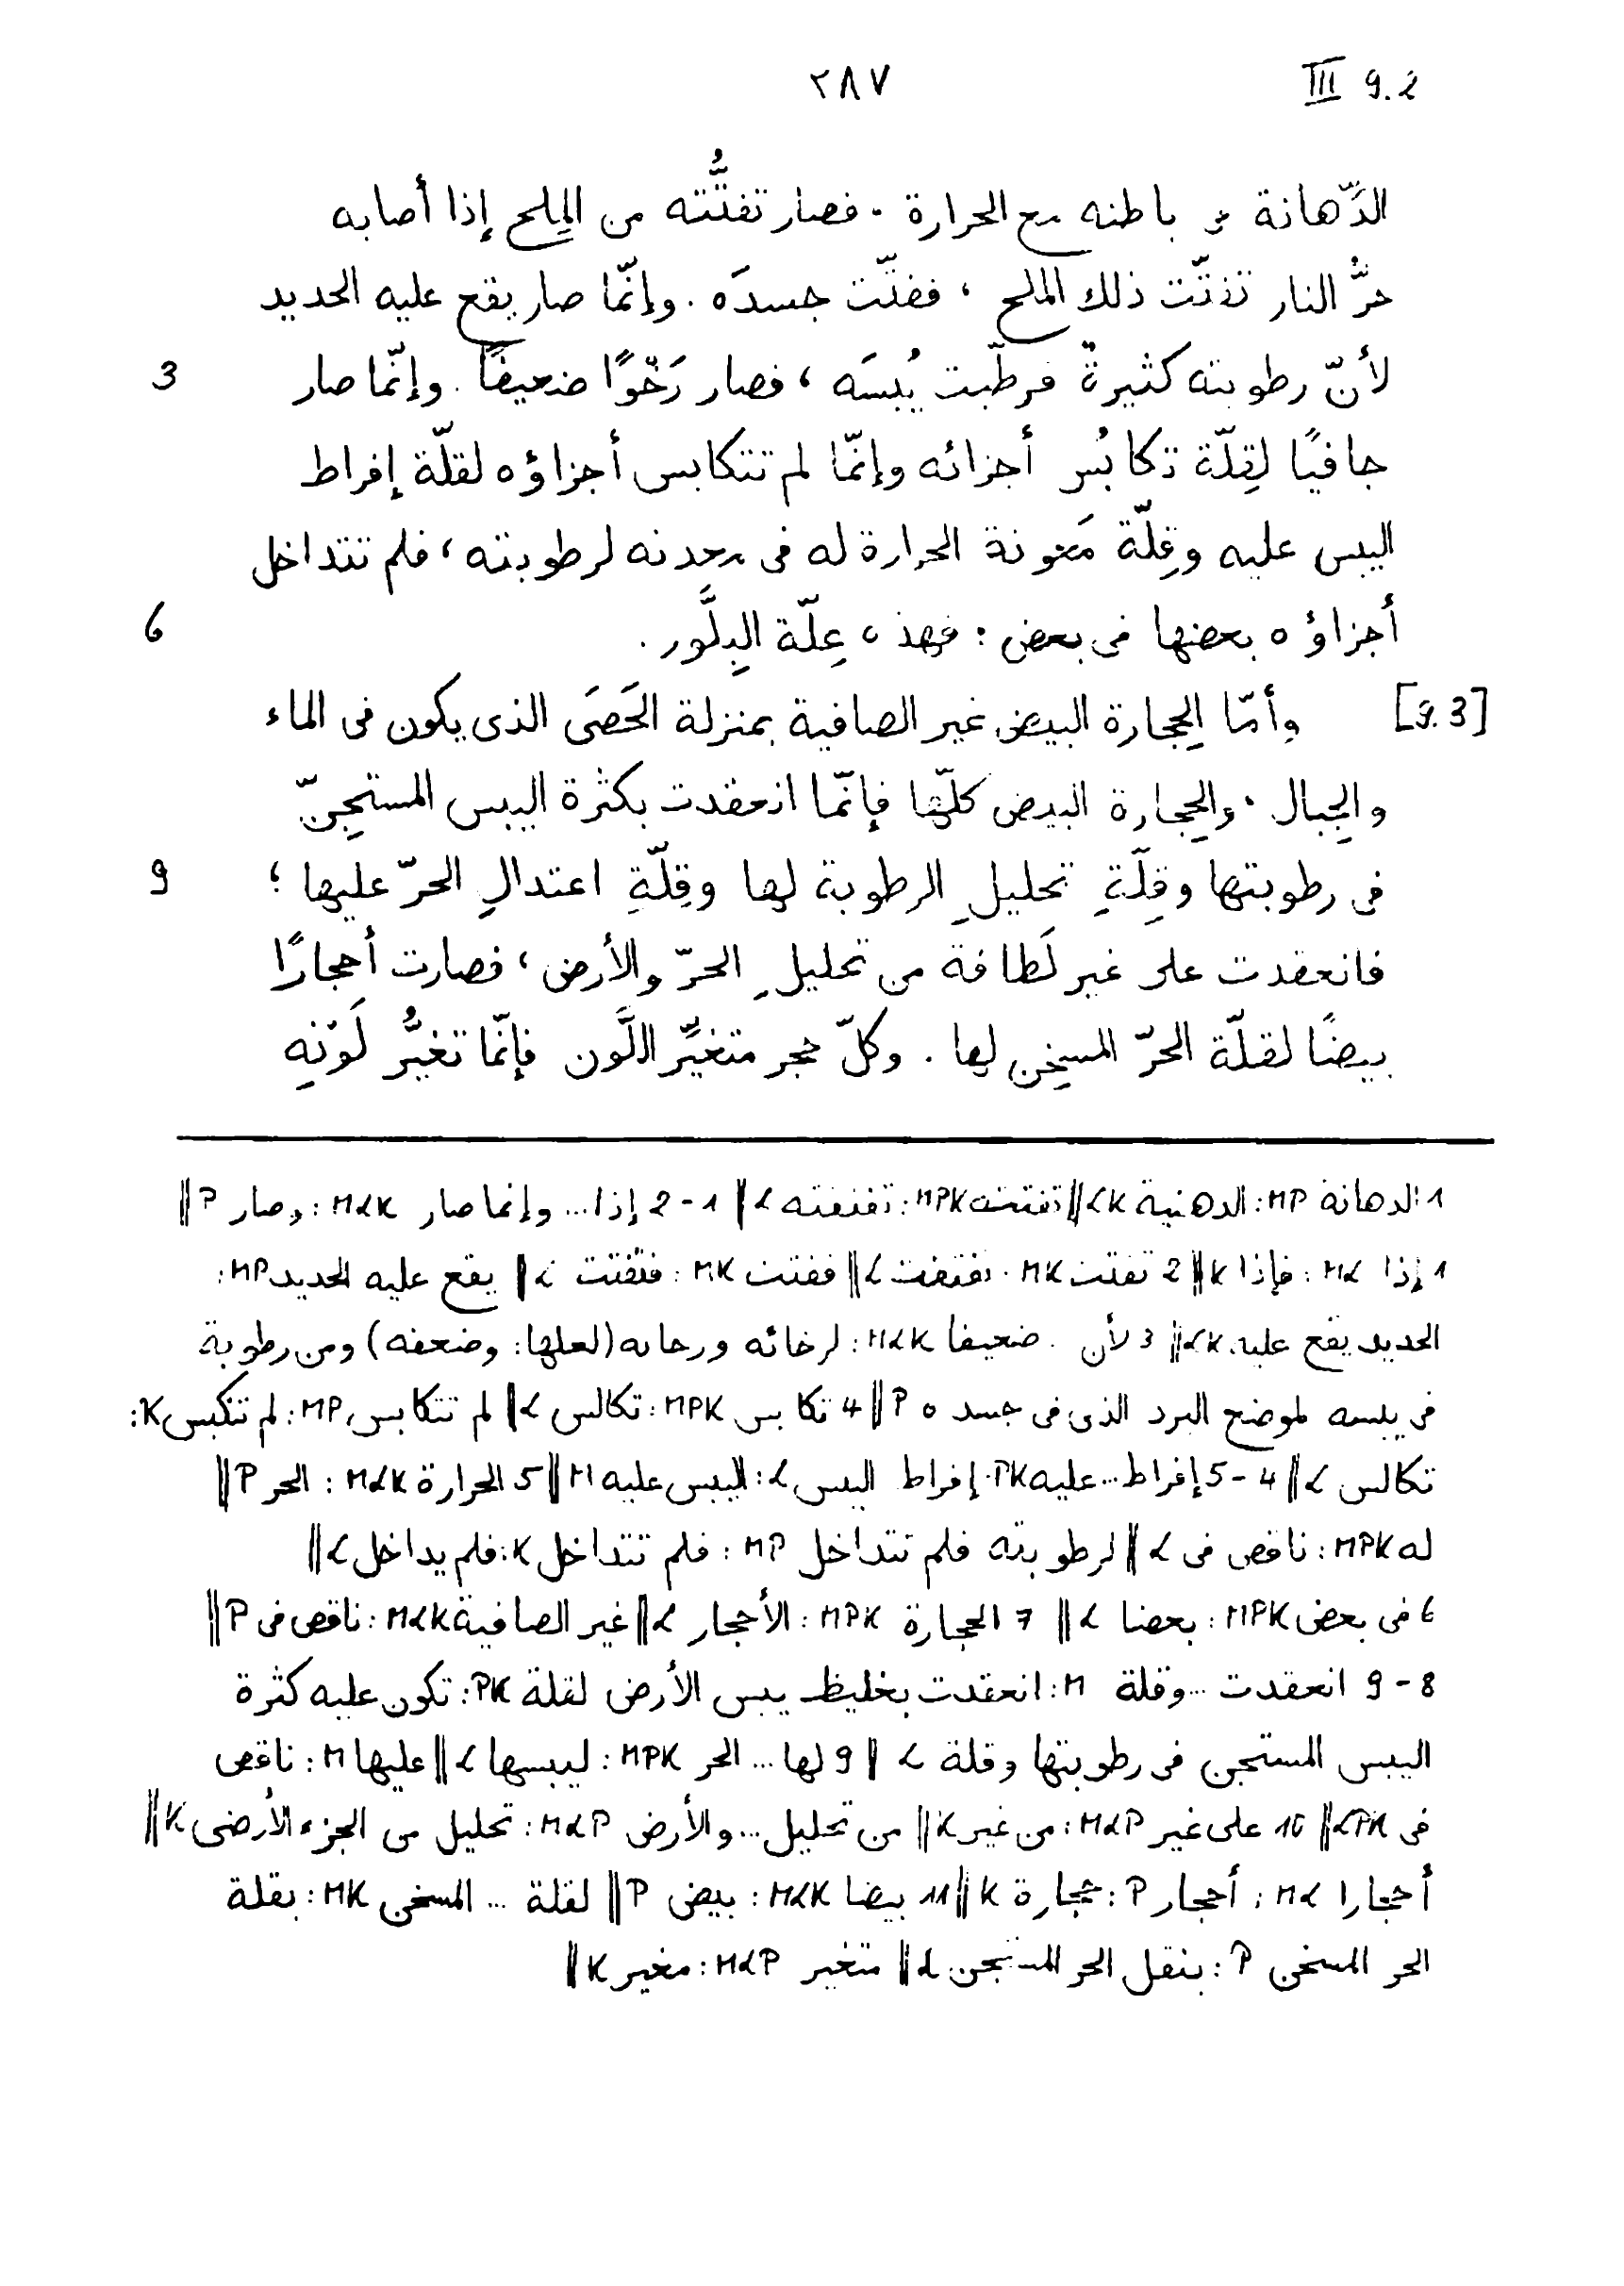 ٢٨٧ III 9.2
الدَّهانة فى باطنه مع الحرارة. فصار تفتُّته من المِلح إذا أصابه
حرُّ النار تفتّت ذلك المالح، ففتّت جسدَه. وإنّما صار يقع عليه الحديد
3 لأنّ رطوبته كثيرةٌ فرطّبت يُبسَه، فصار رَخْوًا ضعيفًا. وإنّما صار
جافيًا لقِلّة تكابُس أجزائه وإنّما لم تتكابس أجزاؤه لقلّة إفراط
اليبس عليه وقِلّة مَعونة الحرارة له فى معدنه لرطوبته، فلم تتداخل
6 أجزاؤه بعضها فى بعض: فهذه عِلّة البِلَّور.
[9.3] وأمّا الحِجارة البيض غير الصافية بمنزلة الحَصَى الذى يكون فى الماء
والجِبال. والحِجارة البيض كلّها فإنّما انعقدت بكثرة اليبس المستجِنّ
9 فى رطوبتها وقِلّةِ تحليلِ الرطوبة لها وقِلّةِ اعتدالِ الحرّ عليها؛
فانعقدت على غير لَطافة من تحليلِ الحرّ والأرض، فصارت أحجارًا
بيضًا لقلّة الحرّ المسخِن لها. وكلّ حجر متغيِّر اللَّون فإنّما تغيُّر لَوْنِهِ
1 الدهانة MP: الدهنية LK || تفتته MPK: تفتفته L || 1-2 إذا... وإنما صار MLK: وصار P ||
1 إذا ML: فإذا K || 2 تفتت MK: تفتفت L || ففتت MK: فتفتت L || يقع عليه الحديد MP:
الحديد يقع عليه LK || 3 لأن . ضعيفا MLK: لرخائه ورحاىه (لعلها: وضعفه) ومن رطوبة
فى يبسه لموضع البرد الذى فى جسده P || 4 تكابس MPK: تكالس L || لم تتكابس MP: لم تتكبس K:
تكالس L || 4-5 إفراط... عليه PK: إفراط اليبس L: اليبس عليه M || 5 الحرارة MLK: الحر P ||
له MPK: ناقص فى L || لرطوبته فلم تتداخل MP: فلم تتداخل K: فلم يداخل L ||
6 فى بعض MPK: بعضا L || 7 الحجارة MPK: الأحجار L || غير الصافية MLK: ناقص فى P ||
8-9 انعقدت... وقلة M: انعقدت بغليظ يبس الأرض لقلة PK: تكون عليه كثرة
اليبس المستجن فى رطوبتها وقلة L || 9 لها... الحر MPK: ليبسها L || عليها M: ناقص
فى LPK || 10 على غير MLP: من غير K || من تحليل... والأرض MLP: تحليل من الجزء الأرضى K ||
أحجارا ML: أحجار P: حجارة K || 11 بيضا MLK: بيض P || لقلة ... المسخن MK: بقلة
الحر المسخن P: بنقل الحر المستجن L || متغير MLP: مغير K ||